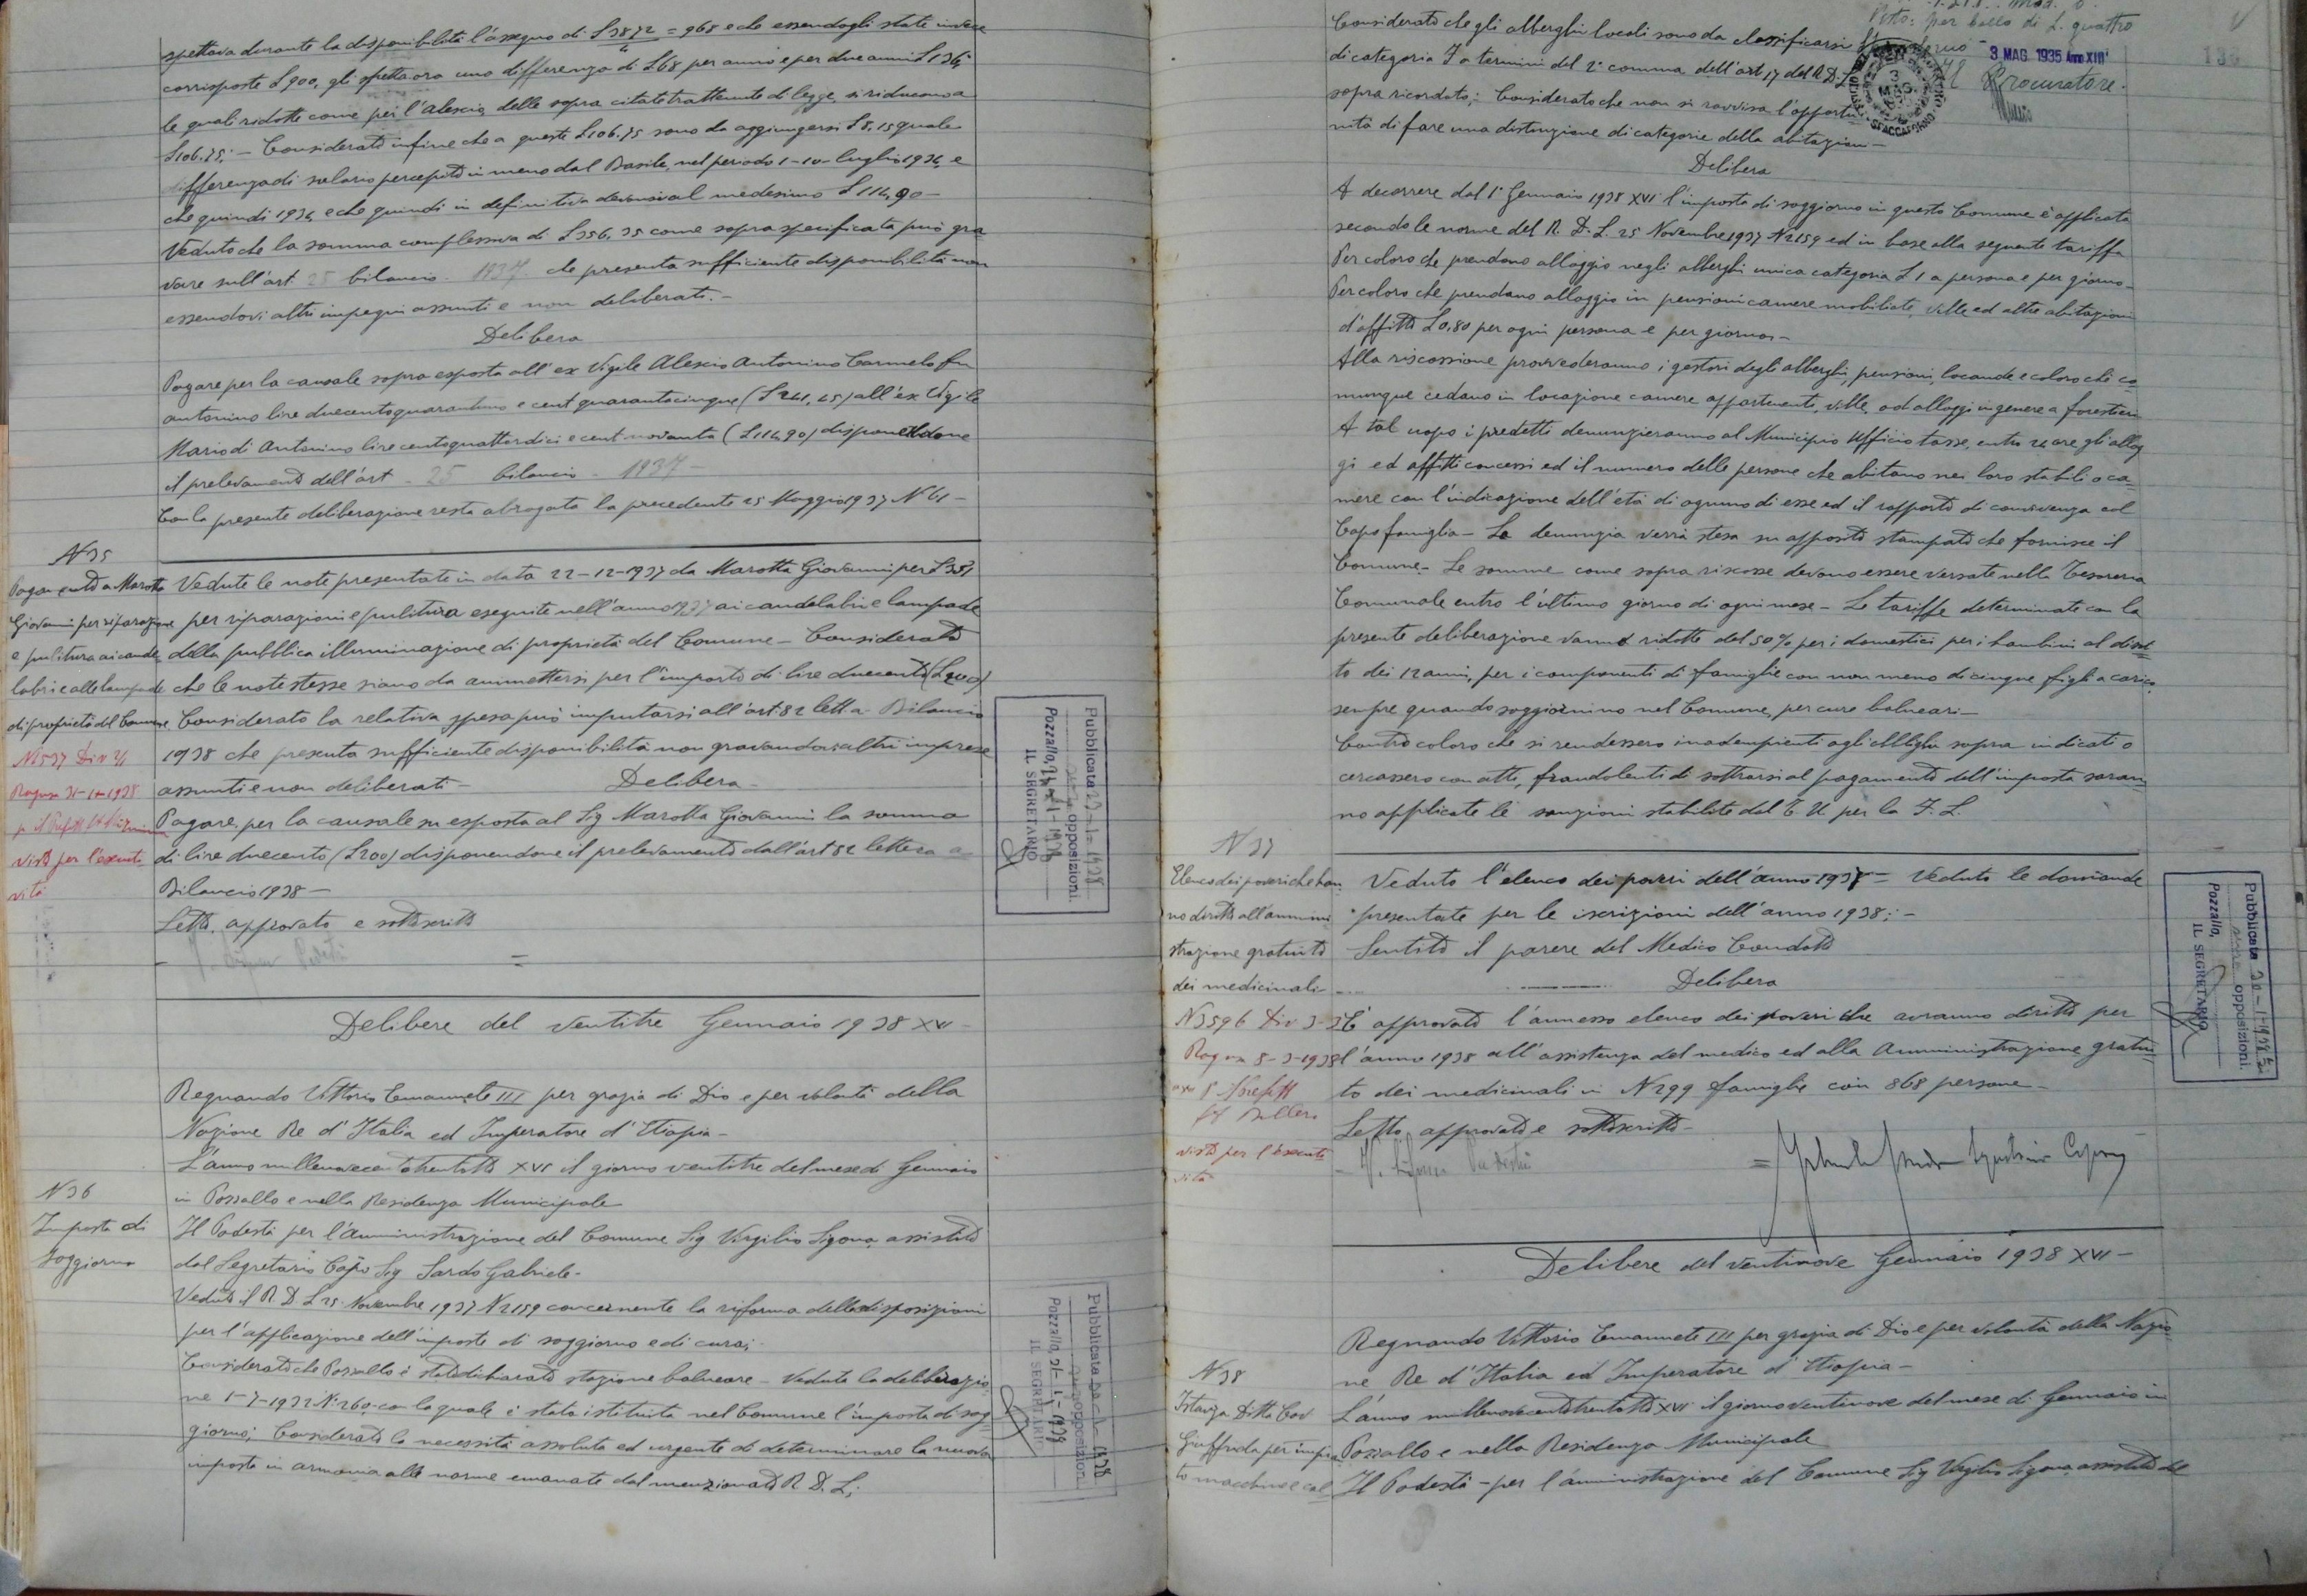 spettava durante la disponibilità l'assegno di L 3872/4 = 968 e che essendogli state invece
corrisposte L 900, gli spetta ora una differenza di L 68 per anno e per due anni L 136
le quali ridotte come per l'Alescio delle sopra citate trattenute di legge, si riducono a
L 106.75; - Considerato infine che a queste L 106.75 sono da aggiungersi L 8,15 quale
differenza di salario percepito in meno dal Basile, nel periodo 1-10- luglio 1934 e
che quindi 1934 e che quindi in definitiva devonsi al medesimo L 114,90 -
Veduto che la somma complessiva di L 356.35 come sopra specificata può gra-
vare sull'art 25 bilancio 1937 che presenta sufficiente disponibilità non
essendovi altri impegni assunti e non deliberati. -
Delibera
Pagare per la causale sopra esposta all'ex Vigile Alescio Antonino Carmelo fu
Antonino lire duecentoquarantuno e cent quarantacinque (L 241,45) all'ex Vigile
Mario di Antonino lire centoquattordici e cent novanta (L 114,90) disponendone
il prelevamento dell'art - 25 bilancio - 1937 -
Con la presente deliberazione resta abrogata la precedente 25 Maggio 1937 N 61 -
N 35
Pagamento a Marotta
Giovanni per riparazione
e pulitura ai cande-
labri e alle lampade
di proprietà del Comune
N 1537 Div 2/1
Ragusa 31-1-1938
visto per l'esecuti
vità
Vedute le note presentate in data 22-12-1937 da Marotta Giovanni per L 251
per riparazioni e pulitura eseguite nell'anno 1937 ai candelabri e lampade
della pubblica illuminazione di proprietà del Comune - Considerato
che le note stesse siano da ammettersi per l'importo di lire duecento (L 200)
Considerato la relativa spesa può imputarsi all'art 82 lett a Bilancio
1938 che presenta sufficiente disponibilità non gravandovi altri imprese
assunti e non deliberati - Delibera -
Pagare per la causale su esposta al Sig Marotta Giovanni la somma
di lire duecento (L 200) disponendone il prelevamento dall'art 82 lettera a
Bilancio 1938 -
Letto, approvato e sottoscritto
Pubblicata 23-1-1938
opposizioni.
Pozzallo, 24-1-1938
IL SEGRETARIO
Delibere del ventitre Gennaio 1938 XVI -
Regnando Vittorio Emanuele III per grazia di Dio e per volontà della
Nazione Re d'Italia ed Imperatore d'Etiopia -
L'anno millenovecentotrentotto XVI il giorno ventitre del mese di Gennaio
in Pozzallo e nella Residenza Municipale
N 36
Imposta di
soggiorno
Il Podestà per l'amministrazione del Comune Sig Virgilio Sigona, assistito
dal Segretario Capo Sig Sardo Gabriele -
Veduto il R D L 25 Novembre 1937 N 2159 concernente la riforma delle disposizioni
per l'applicazione dell'imposte di soggiorno e di cura;
Considerato che Pozzallo è stato dichiarato stazione balneare - Veduta la deliberazio
ne 1-7-1932 N 260 con la quale è stata istituita nel Comune l'imposta di sog-
giorno; Considerato la necessità assoluta ed urgente di determinare la nuova
imposta in armonia alle norme emanate dal menzionato R. D. L;
Pubblicata 30-1-1938
opposizioni.
Pozzallo, 31-1-1938
IL SEGRETARIO
Visto: per bollo di L. quattro
3 MAG. 1935 Anno XIII
Il Procuratore.
SPACCAFORNO
Considerato che gli alberghi locali sono da classificarsi
di categoria I a termini del 2° comma dell'art 17 del R. D. L
sopra ricordato; Considerato che non si ravvisa l'opportu-
nità di fare una distinzione di categorie della abitazioni -
Delibera
A decorrere dal 1° Gennaio 1938 XVI l'imposta di soggiorno in questo Comune è applicata
secondo le norme del R. D. L. 25 Novembre 1937 N 2159 ed in base alla seguente tariffa
Per coloro che prendono alloggio negli alberghi unica categoria L 1 a persona e per giorno -
Per coloro che prendono alloggio in pensioni camere mobiliate, ville ed altre abitazioni
d'affitto L 0.80 per ogni persona e per giorno -
Alla riscossione provvederanno i gestori degli alberghi, pensioni, locande e coloro che co-
munque cedano in locazione camere appartamenti, ville, od alloggi in genere a forestieri
A tal uopo i predetti denunzieranno al Municipio Ufficio tasse, entro 24 ore gli allog
gi ed affitti concessi ed il numero delle persone che abitano nei loro stabili o ca-
mere con l'indicazione dell'età di ognuno di esse ed il rapporto di convivenza col
Capo famiglia - La denunzia verrà stesa su apposito stampato che fornisce il
Comune - Le somme come sopra riscosse devono essere versate nella Tesoreria
Comunale entro l'ultimo giorno di ogni mese - Le tariffe determinate con la
presente deliberazione vanno ridotte del 50% per i domestici per i bambini al disot-
to dei 12 anni, per i componenti di famiglie con non meno di cinque figli a carico,
sempre quando soggiornino nel Comune, per cure balneari -
Contro coloro che si rendessero inadempienti agli obblighi sopra indicati o
cercassero con atti, fraudolenti di sottrarsi al pagamento dell'imposta saran
no applicate le sanzioni stabilite dal T. U per la F. L.
N 37
Elenco dei poveri che han-
no diritto all'ammini
strazione gratuita
dei medicinali -
N 3596 Div 3-3
Ragusa 5-3-1938
visto per l'esecuti
vità
Veduto l'elenco dei poveri dell'anno 1937 = Vedute le domande
presentate per le iscrizioni dell'anno 1938; -
Sentito il parere del Medico Condotto
Delibera
È approvato l'annesso elenco dei poveri che avranno diritto per
l'anno 1938 all'assistenza del medico ed alla Amministrazione gratui-
ta dei medicinali in N 299 famiglie con 868 persone -
Letto approvato e sottoscritto -
Pubblicata 30-1-1938
opposizioni.
Pozzallo,
IL SEGRETARIO
Delibere del ventinove Gennaio 1938 XVI -
Regnando Vittorio Emanuele III per grazia di Dio e per volontà della Nazio
ne Re d'Italia ed Imperatore d'Etiopia -
N 38
Istanza Ditta Cav
Giuffrida per impian
to macchine e cal
L'anno millenovecentotrentotto XVI il giorno ventinove del mese di Gennaio in
Pozzallo e nella Residenza Municipale
Il Podestà - per l'amministrazione del Comune Sig Virgilio Sigona assistito dal